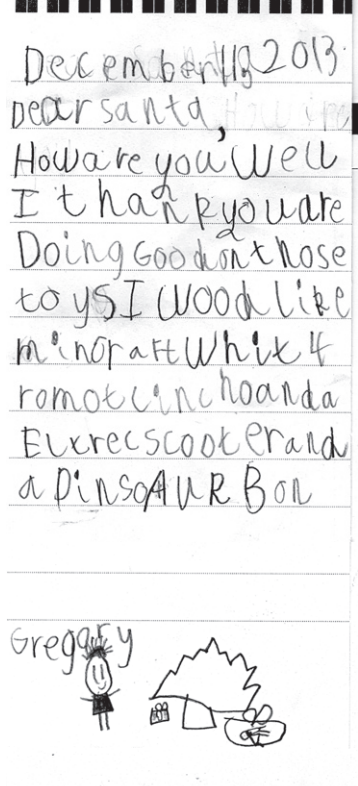 December 11g 2013
Dear santa,
How are you Well
I thank you are
Doing Goodonthose
toysI wood like
mincraft Whit 4
romotcinchoanda
Elxrecscooterand
a DinsoAUR Bon
Gregary